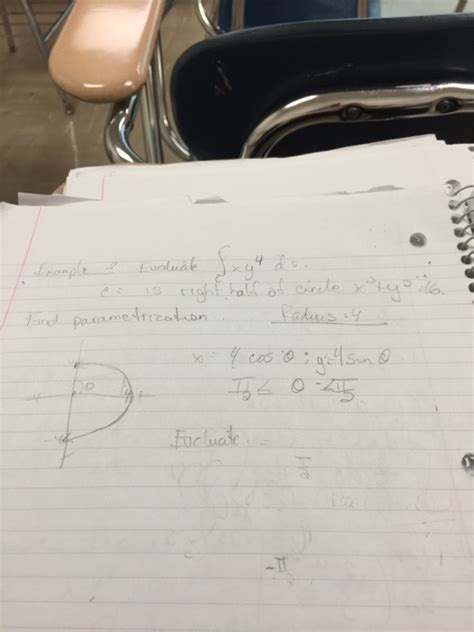 Example 2 Evaluate ∫xy⁴ ds.
C = is right half of circle x²+y²=16.
Find parametrization. Radius=4
x = 4 cos θ ; y=4 sin θ
π/2 ≤ θ ≤ π/2
0
-4
4
-4
Evaluate =
π/2
-π